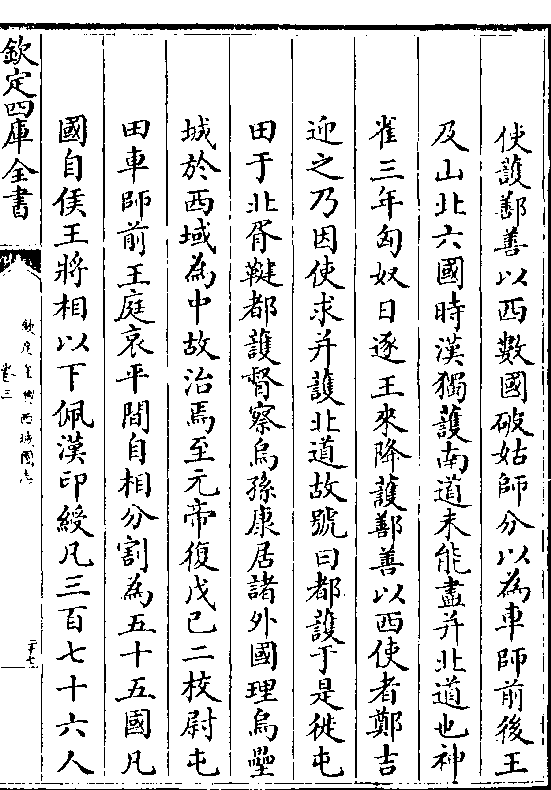 使護鄯善以西數國破姑師分以為車師前後王
及山北六國時漢獨護南道未能盡并北道也神
雀三年匈奴日逐王來降護鄯善以西使者鄭吉
迎之乃因使求并護北道故號曰都護于是徙屯
田于北胥鞬都護督察烏孫康居諸外國理烏壘
城於西域為中故治焉至元帝復戊己二校尉屯
田車師前王庭哀平間自相分割為五十五國凡
國自侯王將相以下佩漢印綬凡三百七十六人
欽定四庫全書
欽定皇輿西域圖志
卷三
二十七